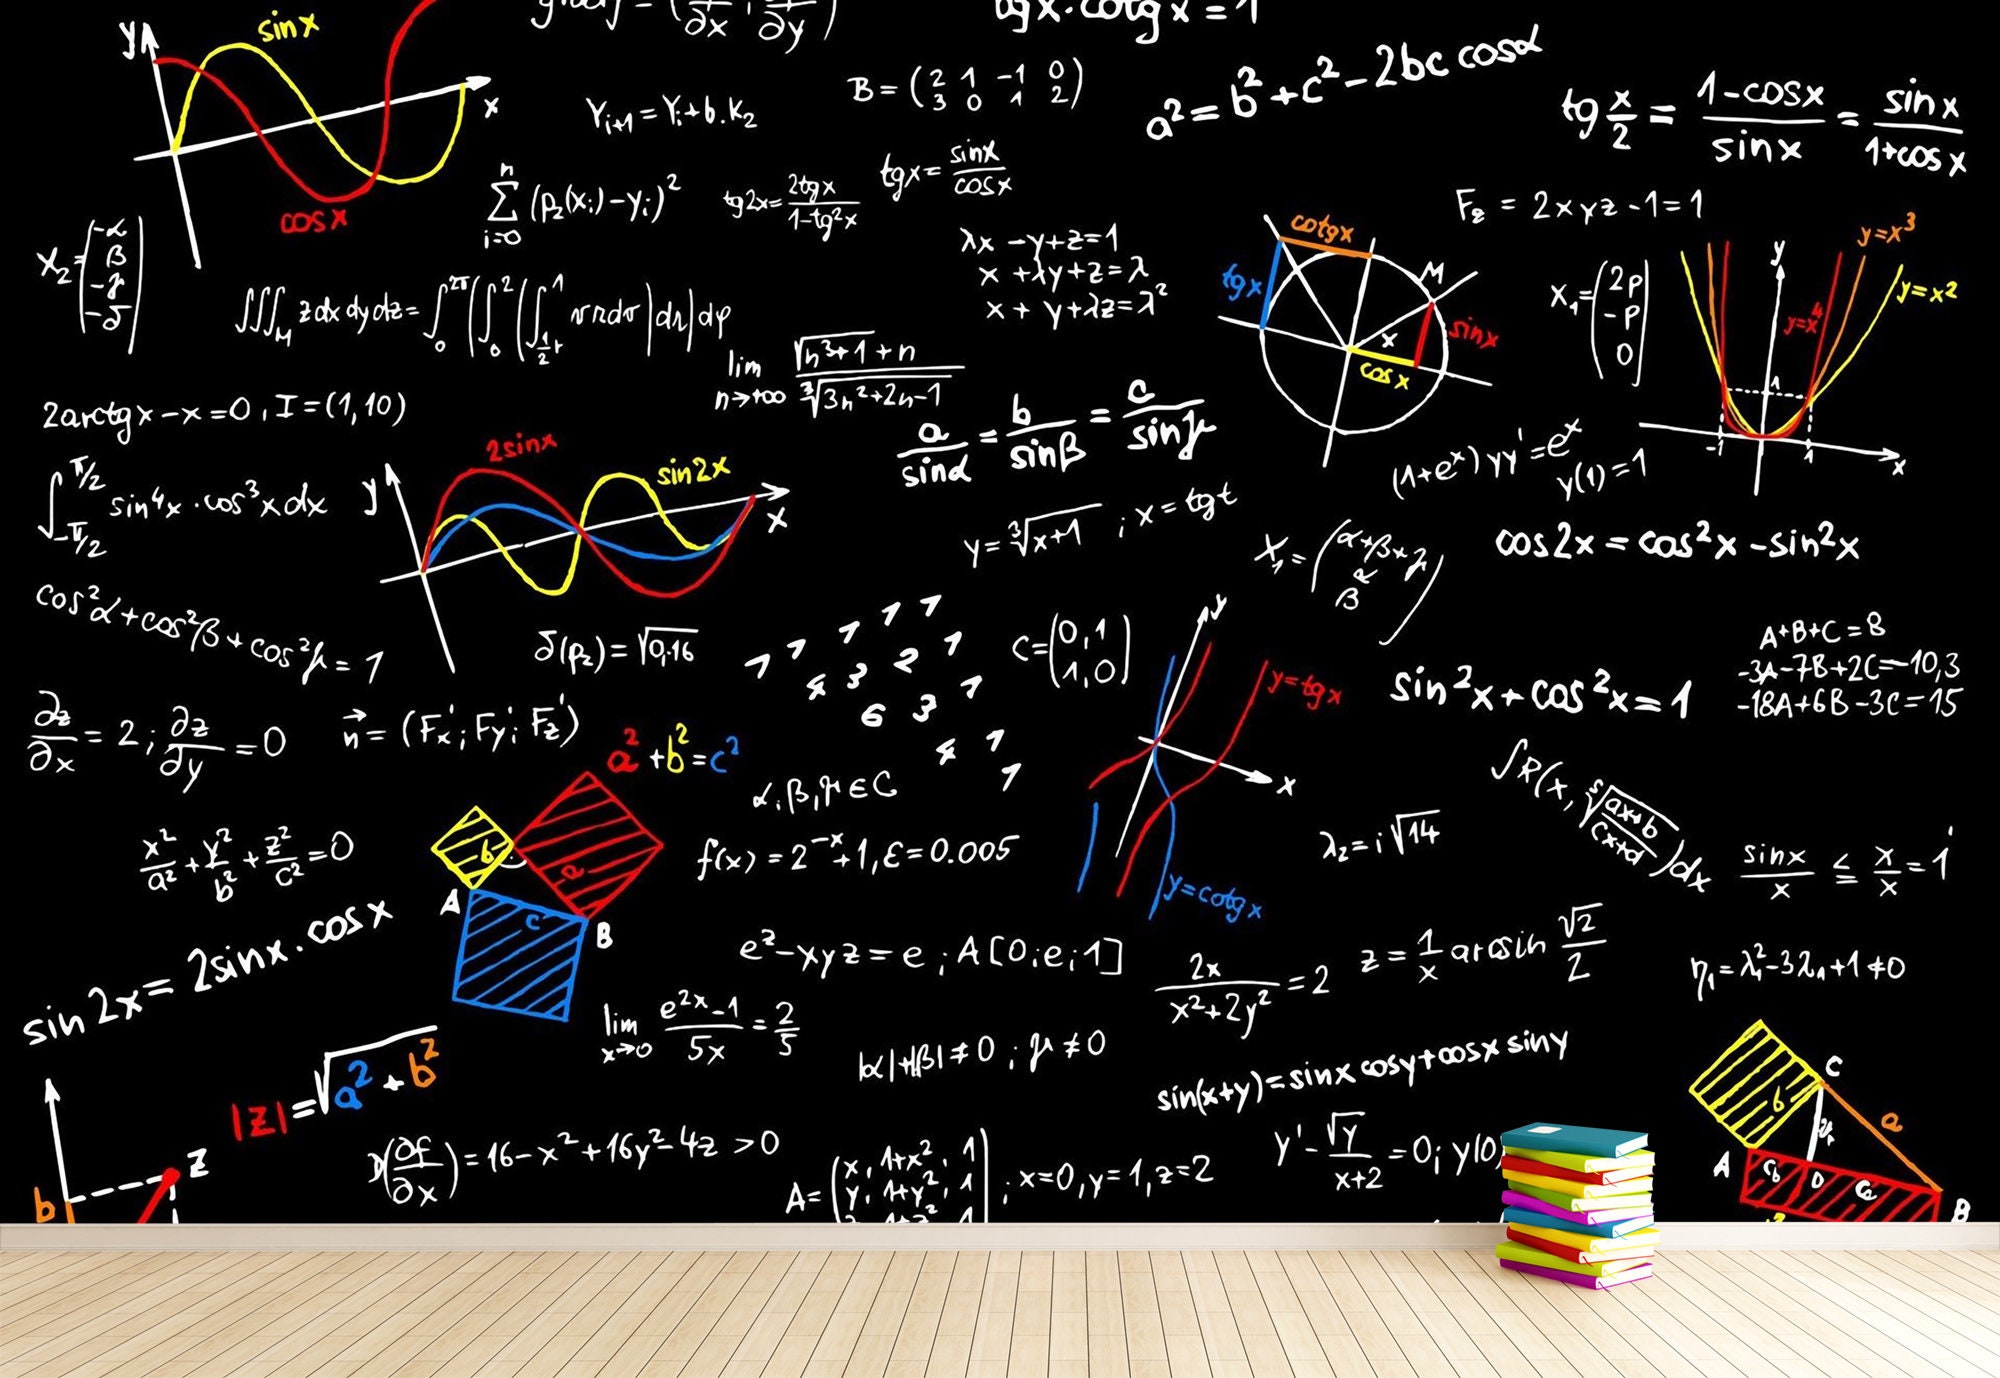 y
sin x
x
cos x
tg x · cotg x = 1
B = (2 1 -1 0
3 0 1 2)
a² = b² + c² - 2bc cosα
tg x/2 = (1-cosx)/sinx = sinx/(1+cosx)
Yᵢ₊₁ = Yᵢ + b.K₂
∑ᵢ₌₀ⁿ (p₂(xᵢ) - yᵢ)²
tg2x = 2tgx/(1-tg²x)
tgx = sinx/cosx
F_z = 2xyz - 1 = 1
X₂ = (-α
β
-γ
-δ)
λx - y + z = 1
x + λy + z = λ
x + y + λz = λ²
cotgx
tgx
M
x
sinx
cosx
X₁ = (2p
-p
0)
y
y=x³
y=x²
y=x⁴
1
-1
1
x
lim n→+∞ (√(n³+1) + n)/∛(3n²+2n-1)
2arctgx - x = 0, I = (1,10)
a/sinα = b/sinβ = c/sinγ
(1+eˣ)yy' = eˣ
y(1) = 1
∫_{-π/2}^{π/2} sin⁴x · cos³x dx
y
2sinx
sin2x
x
y = ∛(x+1) ; x = tgt
X₁ = (α+β+γ
α
β)
cos2x = cos²x - sin²x
cos²α + cos²β + cos²γ = 1
δ(p₂) = √0,16
1 1 1 1
4 3 2 1
6 3 1
4 1
1
C = (0,1
1,0)
y
y=tgx
x
y=cotgx
A+B+C=8
-3A-7B+2C=-10,3
-18A+6B-3C=15
sin²x + cos²x = 1
∂z/∂x = 2 ; ∂z/∂y = 0
n⃗ = (Fx' ; Fy' ; Fz')
a² + b² = c²
b
a
c
A
B
α, β, γ ∈ C
∫R(x, ⁵√((ax+b)/(cx+d)))dx
x²/a² + y²/b² + z²/c² = 0
f(x) = 2⁻ˣ + 1, ε = 0.005
λ₂ = i√14
sinx/x ≤ x/x = 1
sin2x = 2sinx · cosx
e^z - xyz = e ; A[0;e;1]
2x/(x²+2y²) = 2
z = 1/x arcsin √2/2
η₁ = λ₁² - 3λ₁ + 1 ≠ 0
lim x→0 (e²ˣ-1)/5x = 2/5
|α|+|β| ≠ 0 ; γ ≠ 0
sin(x+y) = sinx cosy + cosx siny
|z| = √(a² + b²)
z
b
D(∂f/∂x) = 16 - x² + 16y² - 4z > 0
A = (x, 1+x², 1
y, 1+y², 1
; x=0, y=1, z=2
y' - √y/(x+2) = 0; y(0)
C
b
a
A
D
B